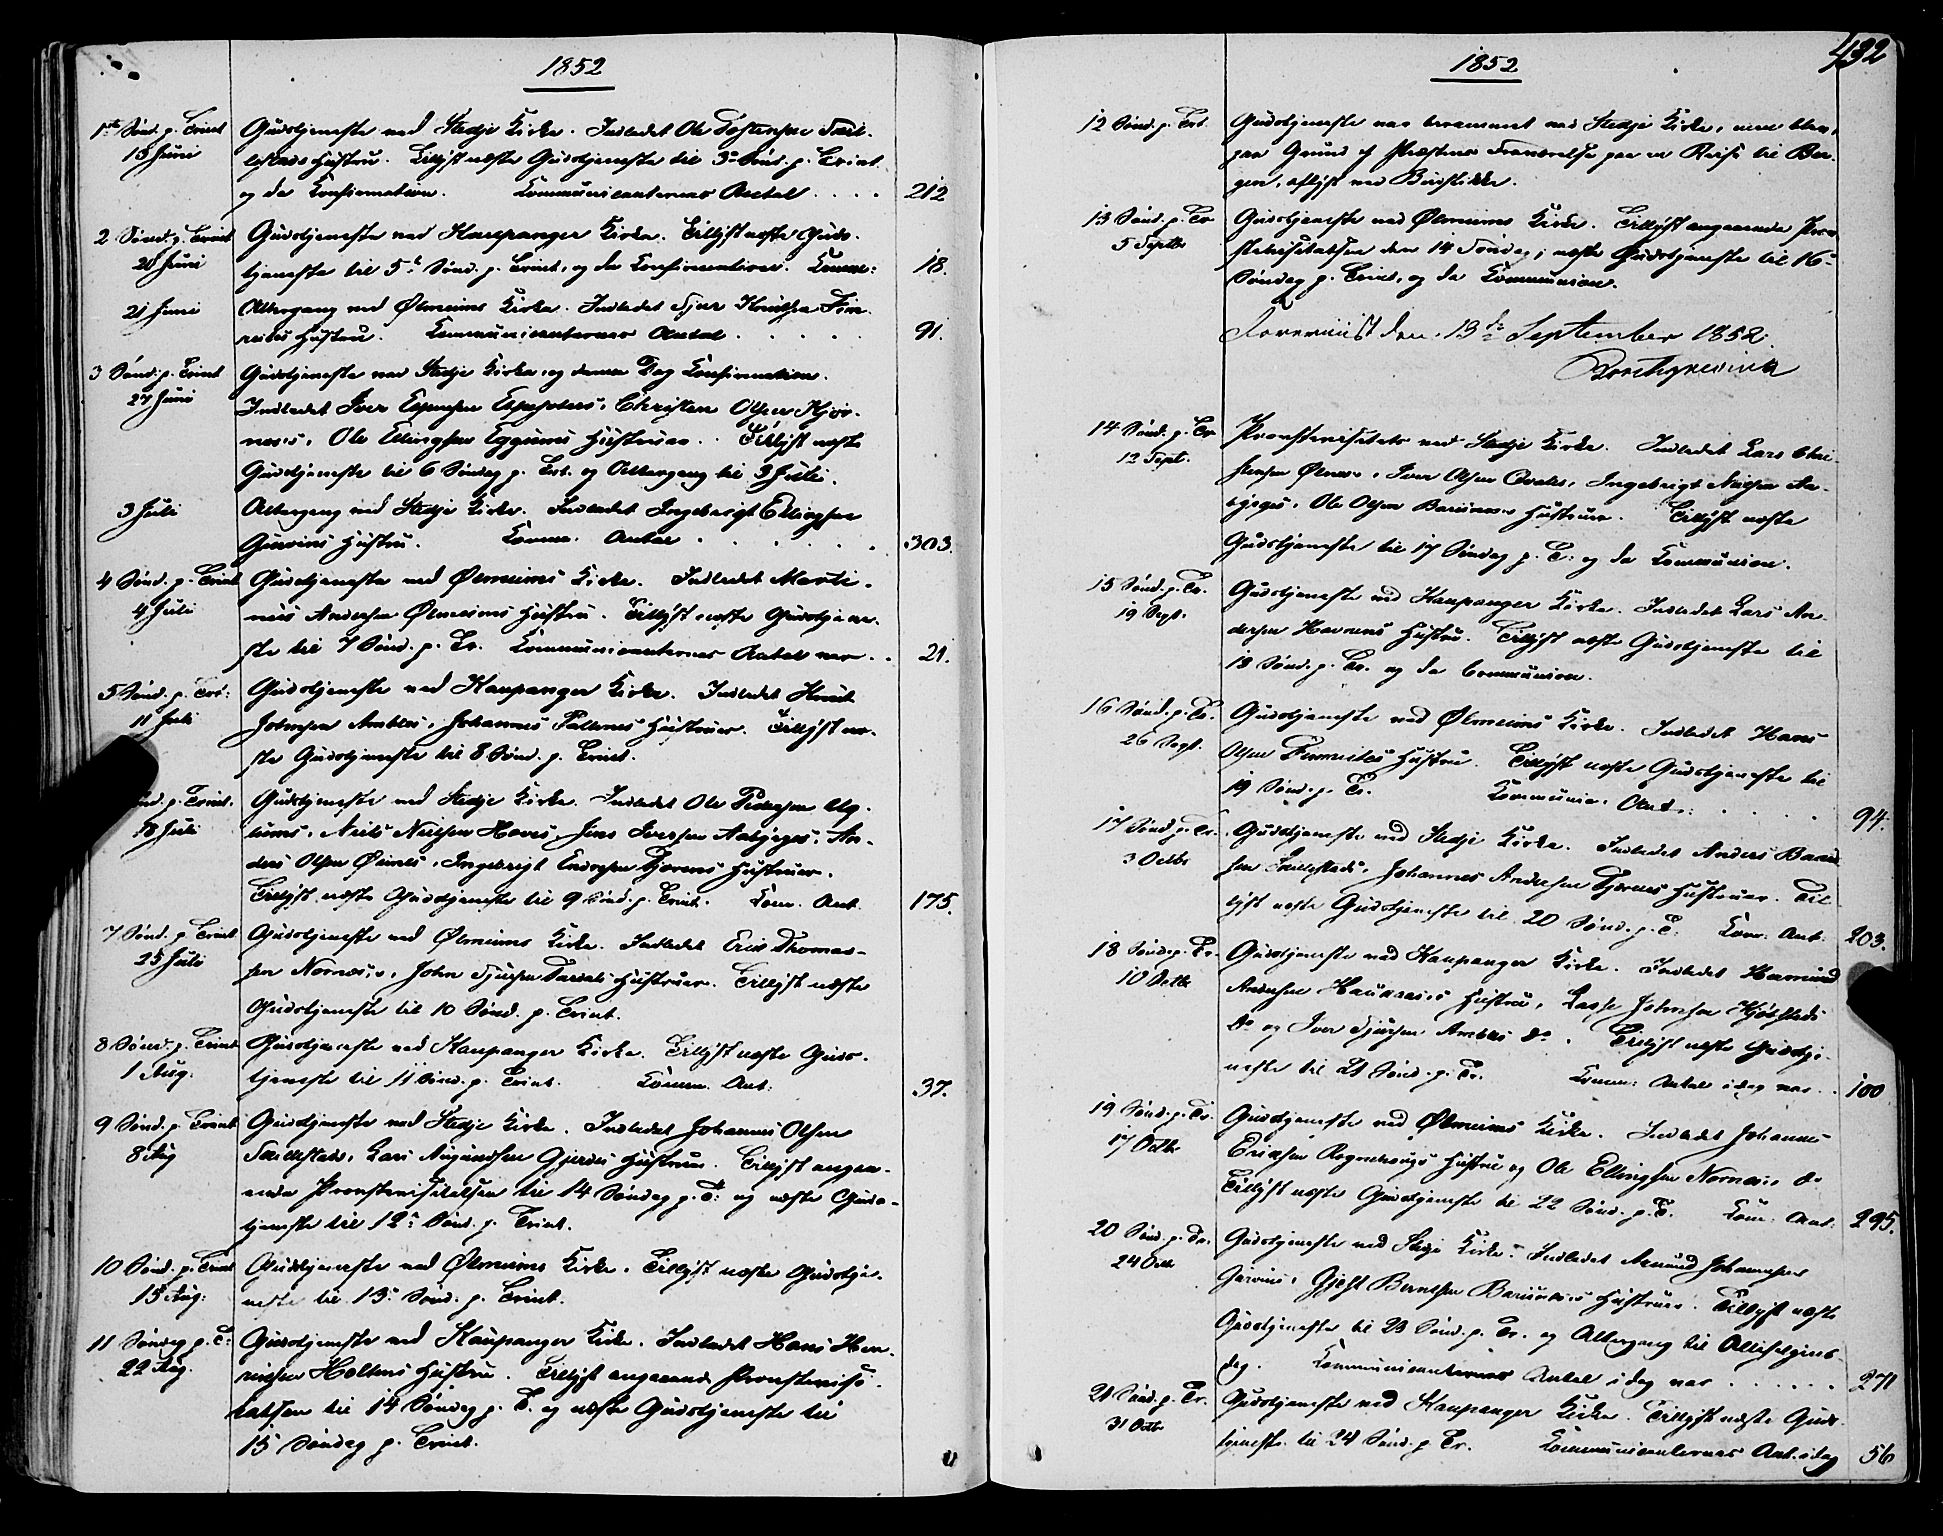 1852
1ste Sønd. p. Trinit
13 Juni
Gudstjeneste ved Stedje Kirke. Indledet Ole Tostensen Skil-
lestads Hustru. Tillyst næste Gudstjeneste til 3die Sønd. p. Trinit.
og da Konfirmation. Kommunicanternes Antal . . . . 212
2 Sønd. p. Trinit
20 Juni
Gudstjeneste ved Kaupanger Kirke. Tillyst næste Guds-
tjeneste til 5te Sønd. p. Trinit, og da Konfirmation. Komm: 18.
21 Juni
Altergang ved Ølmeims Kirke. Indledet Sjur Knutsen Fim-
reites Hustru. Kommunicanternes Antal . . . . 91.
3 Sønd. p. Trinit
27 Juni
Gudstjeneste ved Stedje Kirke, og denne Dag Konfirmation.
Indledet Iver Christen Olsen Kjør-
næs's, Ole Ellingsen Eggums Hustruer. Tillyst næste
Gudstjeneste til 6 Søndag p. Trt. og Altergang til 3 Juli.
3 Juli
Altergang ved Stedje Kirke. Indledet Ingebrigt Ellingsen
Gurvins Hustru. Komm. Antal . . . . 303.
4 Sønd. p. Trinit
4 Juli
Gudstjeneste ved Ølmeims Kirke. Indledet Marti-
nus Andersen Ølmeims Hustru. Tillyst næste Gudstjene-
ste til 7 Sønd. p. Tr. Kommunicanternes Antal var . . 21.
5 Sønd. p. Trt:
11 Juli
Gudstjeneste ved Kaupanger Kirke. Indledet Knut
Johnsen Ambles, Johannes Hustruer. Tillyst næ-
ste Gudstjeneste til 8 Sønd. p. Trinit.
nd. p. Trinit.
18 Juli
Gudstjeneste ved Stedje Kirke. Indledet Ole Pedersen
Niels Nielsen Hoves, Jens Iversen Aabjerges, An-
ders Olsen Ølnes, Ingebrigt Hustruer.
Tillyst næste Gudstjeneste til 9 Sønd. p. Trinit. Kom. Ant. 175.
7 Sønd. p. Trinit
25 Juli
Gudstjeneste ved Ølmeims Kirke. Indledet Erik Thomas-
sen Nornæs's, John Sjursen Hustruer. Tillyst næste
Gudstjeneste til 10 Sønd. p. Trinit.
8 Sønd. p. Trinit
1 Aug.
Gudstjeneste ved Kaupanger Kirke. Tillyst næste Guds-
tjeneste til 11 Sønd. p. Trinit. Komm. Ant: 37.
9 Sønd. p. Trinit
8 Aug
Gudstjeneste ved Stedje Kirke. Indledet Johannes Olsen
Skillestads, Lars Amundsen Gjerdes Hustruer. Tillyst angaa-
ende Provstevisitatsen til 14 Søndag p. T: og næste Guds-
tjeneste til 12te Sønd. p. Trinit.
10 Sønd. p. Trinit
15 Aug:
Gudstjeneste ved Ølmeims Kirke. Tillyst næste Gudstje-
neste til 13de Sønd. p. Trinit.
11 Søndag p. T:
22 Aug.
Gudstjeneste ved Kaupanger Kirke. Indledet Hans Hen-
riksen Holtens Hustru. Tillyst angaaende Provstevisi-
tatsen til 14 Søndag p. T. og næste Gudstjeneste til
15 Søndag p. Trinit.
1852
432
12 Sønd. p. Trt.
Gudstjeneste var berammet ved Stedje Kirke, men blev,
paa Grund af Præstens Fraværelse paa en Reise til Ber-
gen, aflyst ved Budstikke.
13 Sønd. p. Tr
5 Septbr
Gudstjeneste ved Ølmeims Kirke. Tillyst angaaende Prov-
stevisitatsen den 14 Søndag; næste Gudstjeneste til 16de
Søndag p. Trinit, og da Kommunion.
Foreviist den 13de September 1852.
Borchgrevink
14 Sønd. p. Tr
12 Sept.
Provstevisitats ved Stedje Kirke. Indledet Lars Chri-
stensen Ølnes, Iver Olsen Ingebrigt Nielsen Aa-
bjerges, Ole Olsen Hustruer. Tillyst næste
Gudstjeneste til 17 Søndag p. T: og da Kommunion.
15 Sønd. p. Tr.
19 Sept.
Gudstjeneste ved Kaupanger Kirke. Indledet Lars An-
dersen Havnens Hustru. Tillyst næste Gudstjeneste til
18 Sønd. p. Tr. og da Communion.
16 Sønd. p. Tr.
26 Sept.
Gudstjeneste ved Ølmeims Kirke. Indledet Hans
Olsen Fimreites Hustru. Tillyst næste Gudstjeneste til
19 Sønd. p. Tr. Kommunic. Ant.: . . . . 94.
17 Sønd. p. Tr.
3 Octbr
Gudstjeneste ved Stedje Kirke. Indledet Anders Baard-
sen Skillestads, Johannes Andersen Hustruer. Til-
lyst næste Gudstjeneste til 20 Sønd. p. T: Kom: Ant: 203.
18 Sønd. p. Tr.
10 Octbr
Gudstjeneste ved Kaupanger Kirke. Indledet Hermund
Andersen Haukaas's Hustru, Lasse Johnsen
do og Iver Sjursen Ambles do. Tillyst næste Gudstje-
neste til 21 Sønd. p. Tr. Komm: Antal idag var . . 100
19 Sønd. p. Tr.
17 Octbr
Gudstjeneste ved Ølmeims Kirke. Indledet Johannes
Eriksen Hustru og Ole Ellingsen Nornæs's do
Tillyst næste Gudstjeneste til 22 Sønd. p. T. Kom: Ant. 295.
20 Sønd. p. Tr.
24 Octbr
Gudstjeneste ved Stedje Kirke. Indledet Amund Johannesen
Gurvins, Hustruer. Tillyst næste
Gudstjeneste til 23 Sønd. p. Tr. og Altergang til Allehelgens-
dag. Kommunicanternes Antal idag var . . . . . . 271
21 Sønd. p. Tr.
31 Octbr
Gudstjeneste ved Kaupanger Kirke. Tillyst næste Guds-
tjeneste til 24 Sønd. p. Tr. Kommunicanternes Ant. idag 56